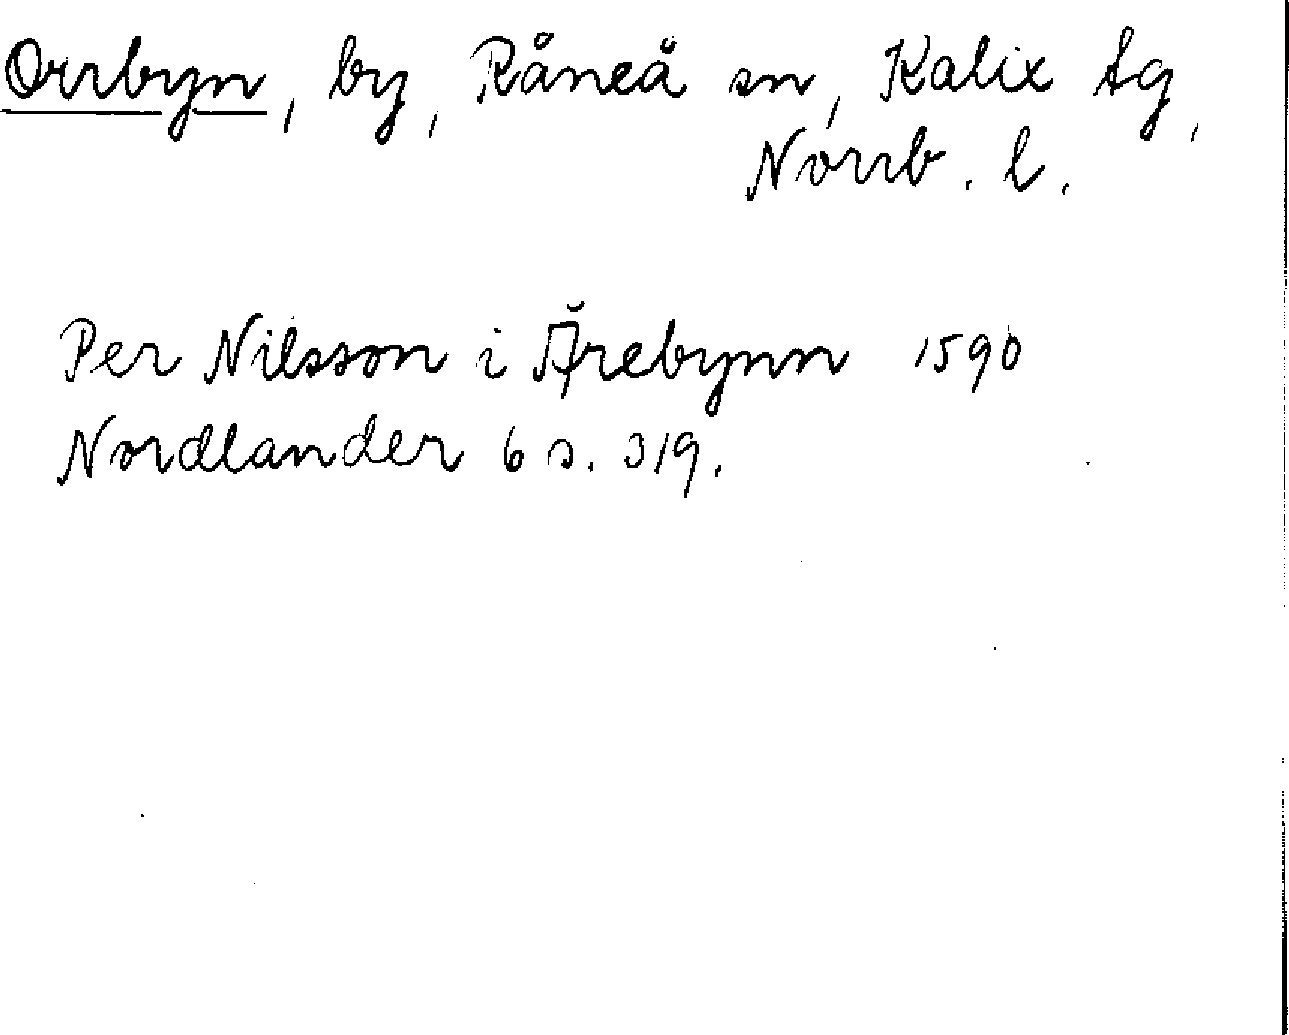 Orrbyn, by, Råneå sn, Kalix tg,
Norrb. l.
Per Nilsson i Årebynn 1590
Nordlander 6 s. 319.